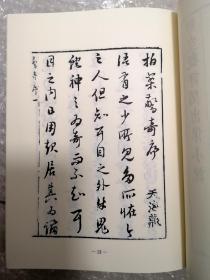 拍案驚奇序
天海藏
語有之少所見多所怪今
之人但知耳目之外牛鬼
蛇神之為奇而不知耳
目之內日用起居其為譎